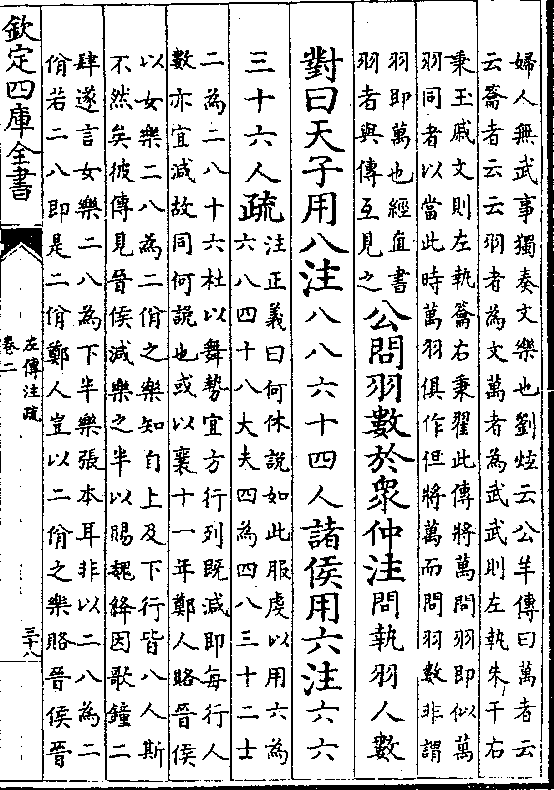 婦人無武事獨奏文樂也劉炫云公羊傳曰萬者云
云籥者云云羽者為文萬者為武武則左執朱干右
秉玉戚文則左執籥右秉翟此傳將萬問羽即似萬
羽同者以當此時萬羽俱作但將萬而問羽數非謂
羽即萬也經直書
羽者與傳互見之
公問羽數於衆仲注問執羽人數
對曰天子用八注八八六十四人諸侯用六注六六
三十六人疏
注正義曰何休說如此服虔以用六為
六八四十八大夫四為四八三十二士
二為二八十六杜以舞勢宜方行列既減即每行人
數亦宜減故同何說也或以襄十一年鄭人賂晉侯
以女樂二八為二佾之樂知自上及下行皆八人斯
不然矣彼傳見晉侯減樂之半以賜魏絳因歌鐘二
肆遂言女樂二八為下半樂張本耳非以二八為二
佾若二八即是二佾鄭人豈以二佾之樂賂晉侯晉
欽定四庫全書
左傳注疏
卷二
三十八